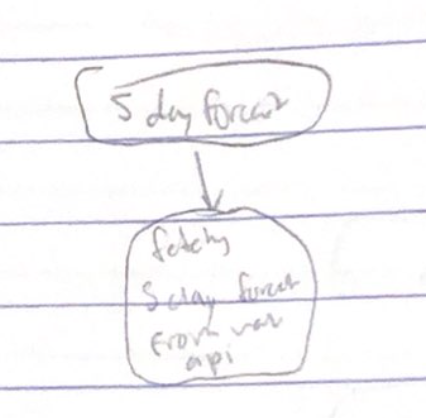 5 day forcast
fetchs
5 day forcast
from
api